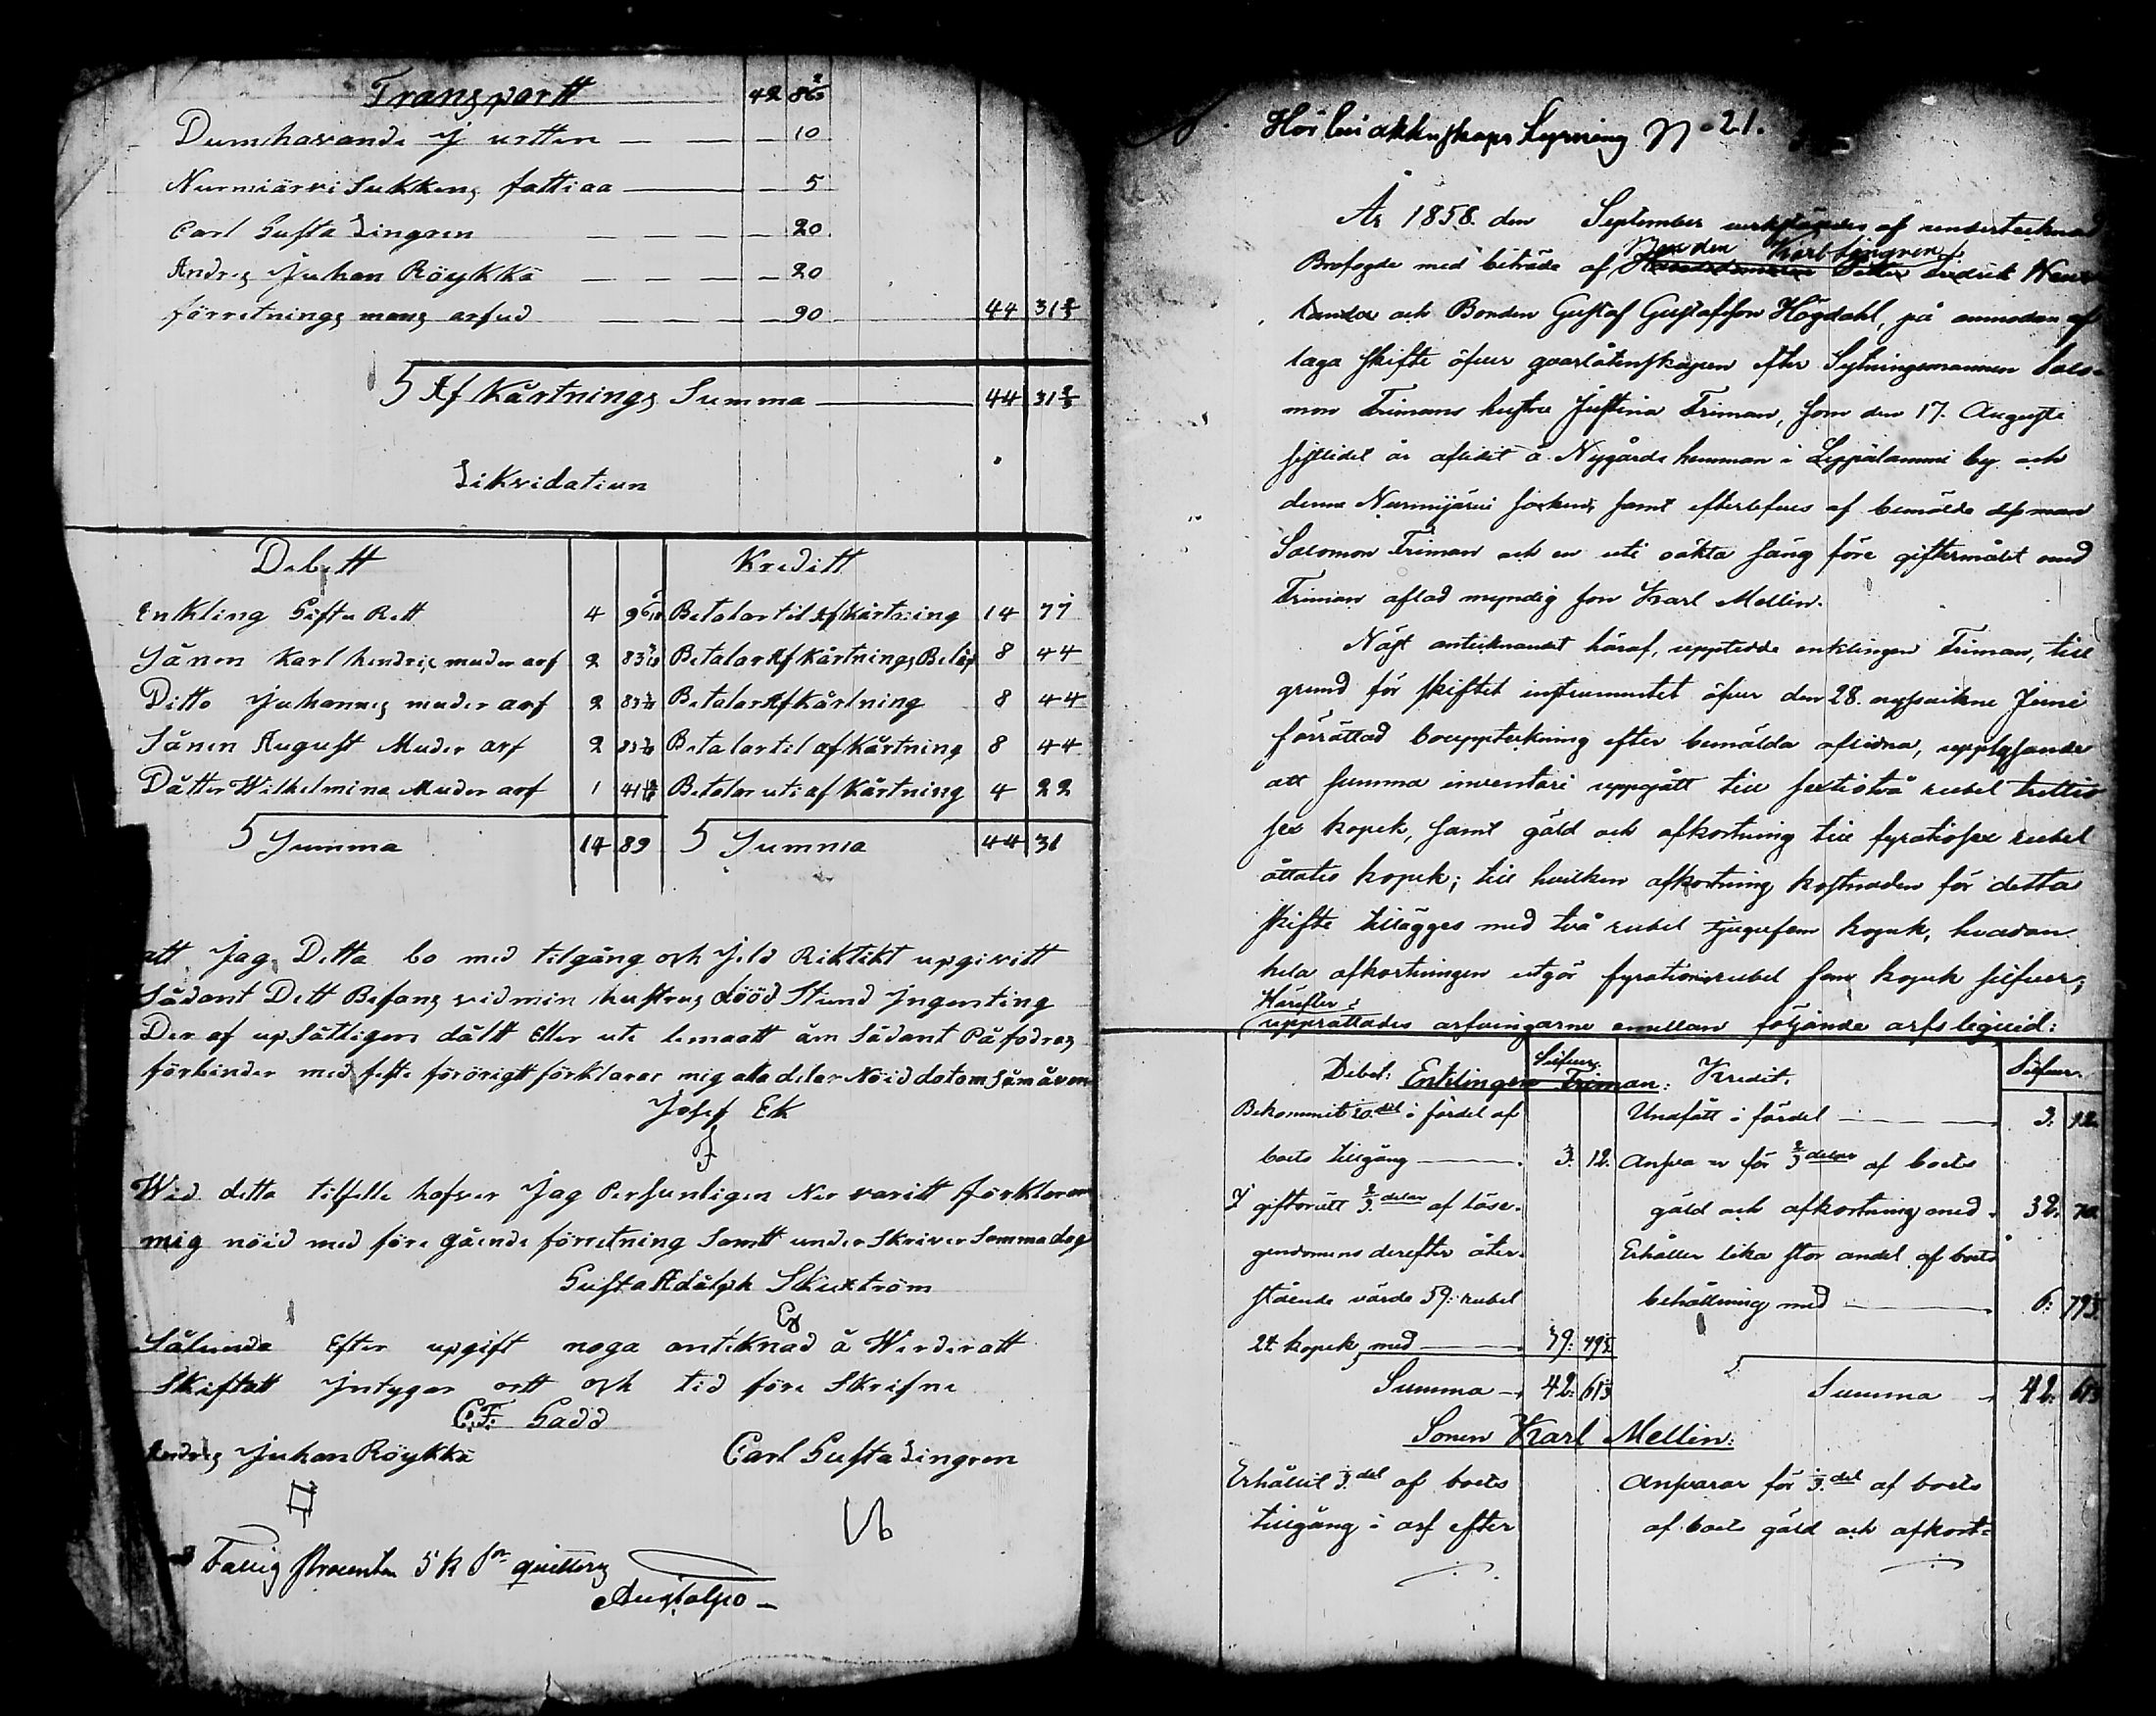 Transportt 42 86
Dumhavande J urtten — — — 10
Nurmiärvi Sukkens fattiaa — — 5
Carl Gusta Lingren — — — 20
Andres Juhan Röykkä — — — 20
förretnings mans arfud — — — 90 44 31 2/3
S Af Kårtnings Summa — 44 31 2/3
Likvidatiun
Debett Kreditt
Enkling Gifta Rett 4 96 Betalar til Af Kårtning 14 77
Sånen Karl hendric muder arf 2 83 Betalar Af Kårtnings Belåp 8 44
Ditto Juhannes muder arf 2 83 Betalar Af Kårtning 8 44
Sånen August Muder arf 2 83 Betalar til af Kårtning 8 44
Dåtter Wilhelmina Muder arf 1 41 Betalar uti af Kårtning 4 22
S Summa 14 89 S Summa 44 31
att Jag Detta bo med tilgång och Jeld Riktikt upgivitt
Sådant Dett Befans vid min hustrus dööd Stund Ingenting
Der af upsåttligen dålt Eller ute lemnatt åm Sådant Påfodras
förbinder med förörigt förklarar mig alla delar Nöid
Josef Ek
Wid detta tilfelle hafver Jag Persunligen Ner varitt förklarar
mig nöid med före gående förretning Samtt under Skriver Samma dag
Gusta Adålph Skuxtröm
Sålunda Efter upgift noga anteknad å Werderatt
Skiftatt Intygar ortt och tid före Skrifne
C.F. Gadd
Andres Juhan Röykkä Carl Gusta Lingren
Fattig Procenten 5 k Sr quitteras
År 1858. den September verkstäldes af undertecknad
Bonden Karl Lingren
Brofogde med biträde af
och Bonden Gustaf Gustafsson Högdahl, på anmodan af
laga skifte öfver qvarlåtenskapen efter Sytningsmannen Salo-
mon Trimans hustru Justina Triman, som den 17. Augusti
sistlidet år aflidit å Nygårds hemman i Leppälammi by och
denna Nurmijärvi socken, samt efterlefves af bemälde dess man
Salomon Triman och en uti oäkta säng före giftermålet med
Triman aflad myndig son Karl Mellin.
Näst antecknandet häraf, uppteddde enklingen Triman, till
grund för skiftet instrumentet öfver den 28. nyssvikne Juni
förrättad bouppteckning efter bemälda aflidna, upplysande
att summa inventari uppgått till sextiotvå rubel trettio
sex kopek, samt gäld och afkortning till fyratiosex rubel
åttatio kopek; till hvilken afkortning kostnaden för detta
skifte tillägges med två rubel tjugufem kopek, hvadan
hela afkortningen utgör fyrationio rubel fem kopek silfver;
Härefter
upprättades arfvingarne emellan följande arfsliquid:
Debet: Enklingen Triman: Kredit.
Silfver. Silfver.
Bekommit 20.del i fördel af Undfått i fördel — 3. 12.
boets tillgång — 3. 12. Ansvarar för 2/3 delar af boets
I giftorätt 2/3 delar af löse- gäld och afkortning med 32. 70.
gendomens derefter åter- Erhåller lika stor andel af boets
stående värde 59: rubel behållning med — 6: 79 1/3
24 kopek med — 39: 49 1/3
Summa 42: 61 1/3 Summa 42: 61 1/3
Sonen Karl Mellin:
Erhållit 1/3 del af boets Ansvarar för 1/3 del af boets
tillgång i arf efter af boets gäld och afkort=